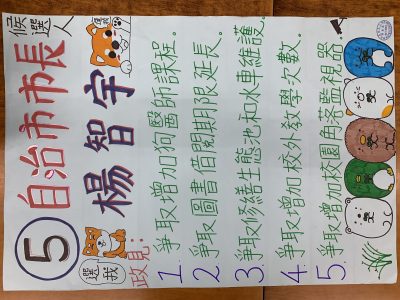 ⑤自治市市長候選人
選我
楊智宇
選我
政見:
1.爭取增加狗醫師課程。
2.爭取圖書借閱期限延長。
3.爭取修繕生態池和水車維護。
4.爭取增加校外教學次數。
5.爭取增加校園角落監視器